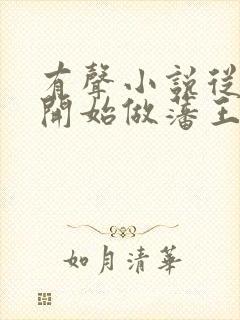 有聲小說從
開始做藩王
如月清華